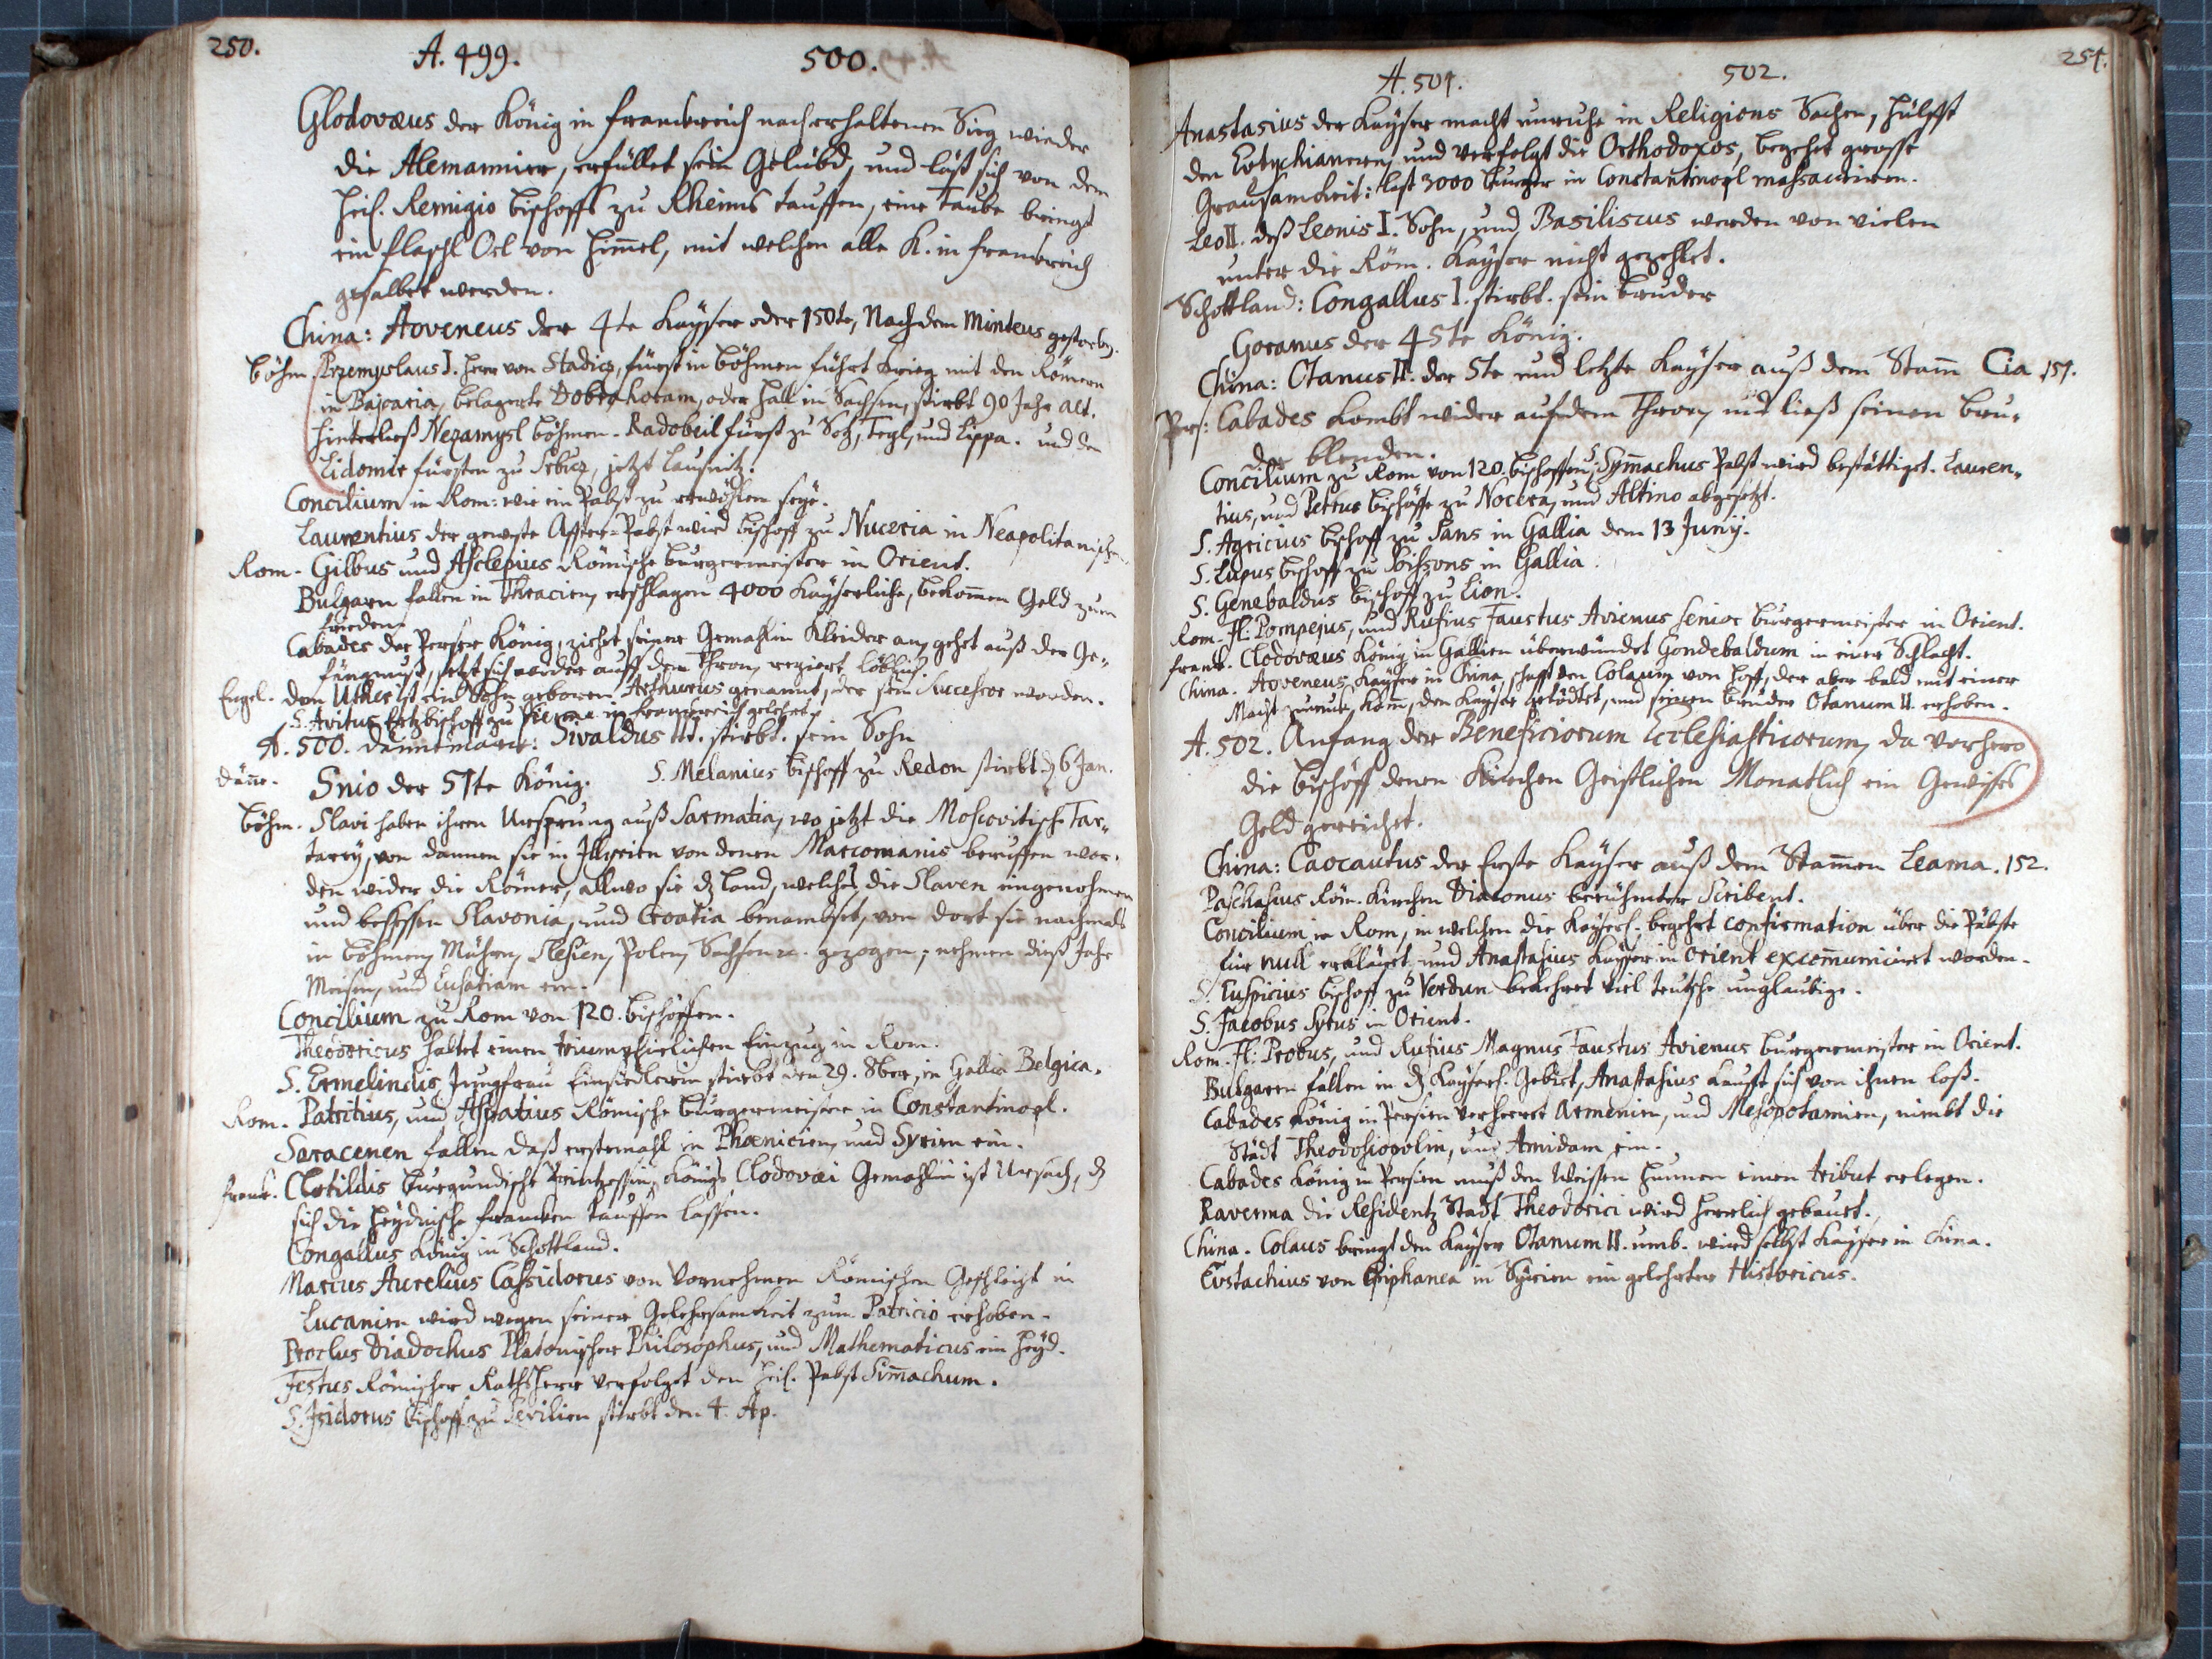 250.
A. 499. 500.
Glodovæus der König in Franckreich nach erhaltenen Sieg wieder
die Alemannier, erfüllet sein Gelübd, und läst sich von dem
heil. Remigio Bischoffs zu Rheims tauffen, eine Taube bringt
ein flaschl Oel von Him̄el, mit welchen alle K. in Franckreich
gesalbet werden.
China: Aoveneus der 4te Kayser oder 150te, Nachdem Minteus gestorben.
Böhm Przemyslaus I. Herr von Stadicz, fürst in Böhmen führt Krieg mit den Römern
in Bajoaria, belagerte Dobrahoram, oder Hall in Sachsen, stirbt 90 Jahr alt.
hinterließ Nezamysl Böhmen. Radobeil fürst zu Tegl, und Lippa. und den
Lidomir fürsten zu jetzt Lausnitz.
Concilium in Rom: wie ein Pabst zu erwöhlen seye.
Laurentius der geweste Affter-Pabst wird Bischoff zu Nuceria in Neapolitanischen
Rom. Gilbus und Asclepius Römische Burgermeister in Orient.
Bulgarn fallen in Thracien, erschlagen 4000 Kayserliche, bekom̄en Geld zum
frieden.
Cabades der Perser König, ziehet seiner Gemahlin Kleider an, gehet auß der Ge-
fängnuß, setzt sich wieder auff den Thron, regiert löblich.
Engel. dem Uther ist ein Sohn geboren Arthurus genannt, der sein Successor worden.
S. Avitus Ertzbischoff zu Vienne in Franckreich gelehrt.
A. 500. Dännemarck: Sivaldus III. stirbt. sein Sohn
Däñe. Snio der 51te König. S. Melanius Bischoff zu Redon stirbt d. 6 Jan.
Böhm. Slavi haben ihren Ursprung auß Sarmatia, wo jetzt die Moscovitische Tar-
tarey, von dannen sie in Illyrien von denen Marcomanis beruffen wor-
den wider die Römer, allwo sie dz Land, welches die Slaven eingenohmen
und besessen Slavonia, und Croatia benambset, von dort sie nachmals
in Böhmen, Mähren, Slesien, Polen, Sachsen etc. gezogen; nehmen diß Jahr
Meisen, und Lusatiam ein.
Concilium zu Rom von 120. Bischöffen.
Theodoricus haltet einen triumphirlichen Einzug in Rom.
S. Ermelindis Jungfrau Einsiedlerin stirbt den 29. 8ber, in Gallia Belgica.
Rom. Patritius, und Aspatius Römische Burgermeister in Constantinopl.
Saracenen fallen daß erstemahl in Phœnicien, und Syrien ein.
Franck. Clotildis Burgundische Printzessin, Königs Clodovæi Gemahlin ist Ursach, dz
sich die Heydnische Francken tauffen lassen.
Congallus König in Schottland.
Marcus Aurelius Cassidorus von Vornehmen Römischen Geschlecht in
Lucanien wird wegen seiner Gelehrsamkeit zum Patricio erhoben.
Proclus Diadochus Platonischer Philosophus, und Mathematicus ein Heyd.
Festus Römischer Rathsherr verfolget den heil. Pabst Sim̄achum.
S. Isidorus Bischoff zu Sevilien stirbt den 4. Ap.
251.
A. 501. 502.
Anastasius der Kayser macht unruhe in Religions Sachen, hülfft
den Eutychianern, und verfolgt die Orthodoxos, begehet grosse
Grausamkeit: last 3000 Burger in Constantinopl massacriren.
Leo II. deß Leonis I. Sohn, und Basiliscus werden von vielen
unter die Röm. Kayser nicht gezehlet.
Schottland: Congallus I. stirbt. sein Bruder
Goranus der 45te König.
China: Otanus II. der 5te und letzte Kayser auß dem Stam̄ Cia 151.
Pers: Cabades kombt wider auf dem Thron, und ließ seinen Bru-
der blenden.
Concilium zu Rom von 120. Bischoffen, Sym̄achus Pabst wird bestättiget. Lauren-
tius, und Petrus Bischöffe zu Nocera, und Altino abgesetzt.
S. Agricius Bischoff zu Sans in Gallia dem 13 Junij.
S. Lupus Bischoff zu Soissons in Gallia.
S. Genebaldus Bischoff zu Lion.
Rom. Fl: Pompejus, und Rufius Faustus Avienus Senior Burgermeister in Orient.
Franck. Clodovæus König in Gallien überwündet Gondebaldum in einer Schlacht.
China. Aoveneus, Kayser in China, schafft den Colaum von Hoff, der aber bald mit einer
Macht zuruck kom̄, den Kayser getödtet, und seinen Bruder Otanum II. erhoben.
A. 502. Anfang der Beneficiorum Ecclesiasticorum, da vorhero
die Bischöff denen Kirchen Geistlichen Monatlich ein Gewisses
Geld gereichet.
China: Caocautus der Erste Kayser auß dem Stam̄en Leama. 152.
Paschasius Röm. Kirchen Diaconus berühmter Scribent.
Concilium in Rom, in welchen die Kayserl. begehrt confirmation über die Päbste
für null erkläret, und Anastasius Kayser in Orient excom̄uniciret worden.
S. Euspicius Bischoff zu Verdun bekehret viel teutsche unglaubige.
S. Jacobus Syrus in Orient.
Rom. Fl: Probus, und Rufius Magnus Faustus Avienus Burgermeister in Orient.
Bulgaren fallen in dz Kayserl. Gebiet, Anastasius kaufft sich von ihnen loß.
Cabades König in Persien verheeret Armenien, und Mesopotamien, nimbt die
Städt Theodosiopolin, und Amidam ein.
Cabades König in Persien muß den Weissen Hunnen einen tribut erlegen.
Ravenna die Residentz Stadt Theodorici wird herrlich gebauet.
China. Colaus bringt den Kayser Otanum II. umb. wird selbst Kayser in China.
Eustachius von Epiphanea in Syrien ein gelehrter Historicus.